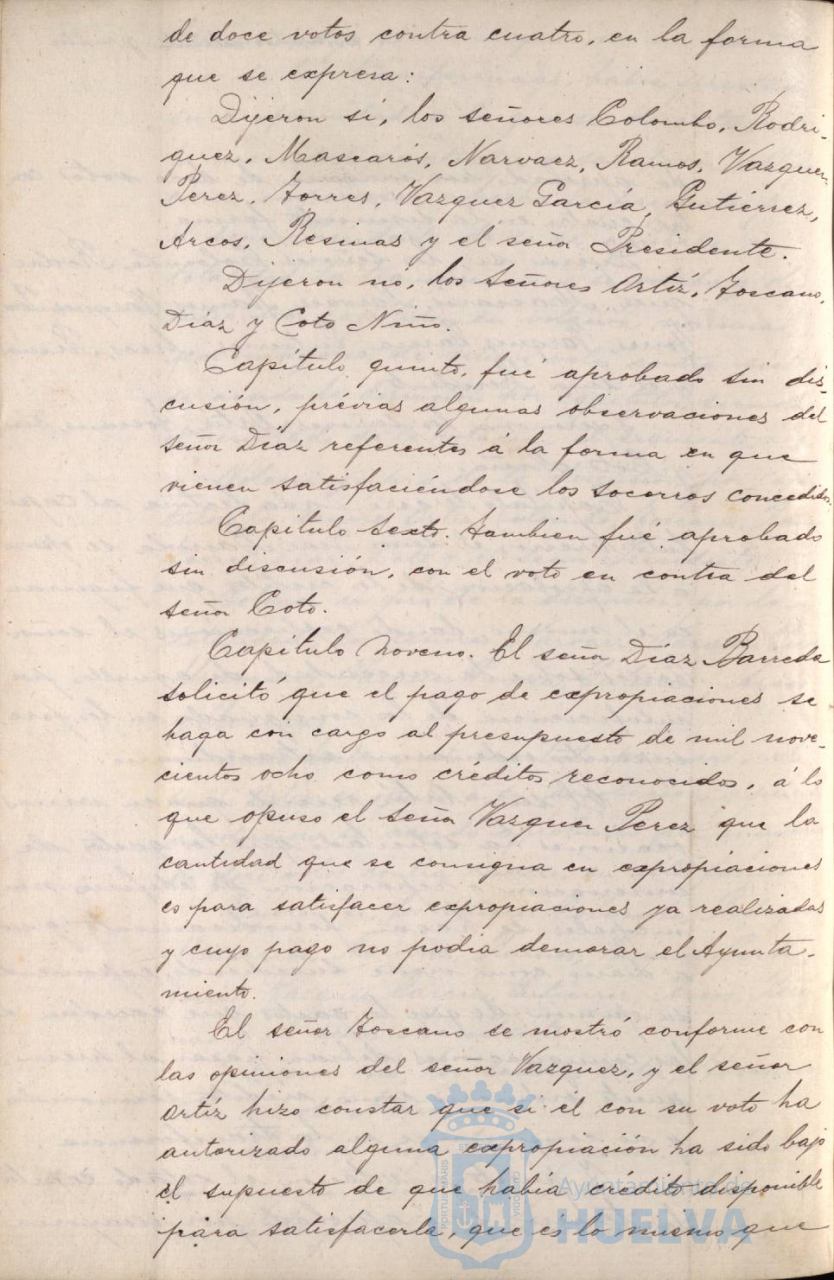 de doce votos contra cuatro, en la forma
que se expresa:
Dijeron sí, los señores Colombo, Rodri-
guez, Mascarós, Narvaez, Ramos, Vazquez
Perez, Torres, Vazquez García, Gutiérrez,
Arcos, Resinas y el señor Presidente.
Dijeron nó, los señores Ortíz, Toscano,
Díaz y Coto Niño.
Capítulo quinto, fué aprobado sin dis-
cusión, prévias algunas observaciones del
señor Díaz referentes á la forma en que
vienen satisfaciéndose los socorros concedidos.
Capítulo sexto. tambien fué aprobado
sin discusión, con el voto en contra del
señor Coto.
Capítulo noveno. El señor Díaz Barreda
solicitó que el pago de expropiaciones se
haga con cargo al presupuesto de mil nove-
cientos ocho como créditos reconocidos, á lo
que opuso el señor Vazquez Perez que la
cantidad que se consigna en expropiaciones
es para satisfacer expropiaciones ya realizadas
y cuyo pago no podia demorar el Ayunta-
miento.
El señor Toscano se mostró conforme con
las opiniones del señor Vazquez, y el señor
Ortíz hizo constar que si él con su voto ha
autorizado alguna expropiación ha sido bajo
el supuesto de que había crédito disponible
para satisfacerla, que és lo mismo que
Ayuntamiento de
HUELVA